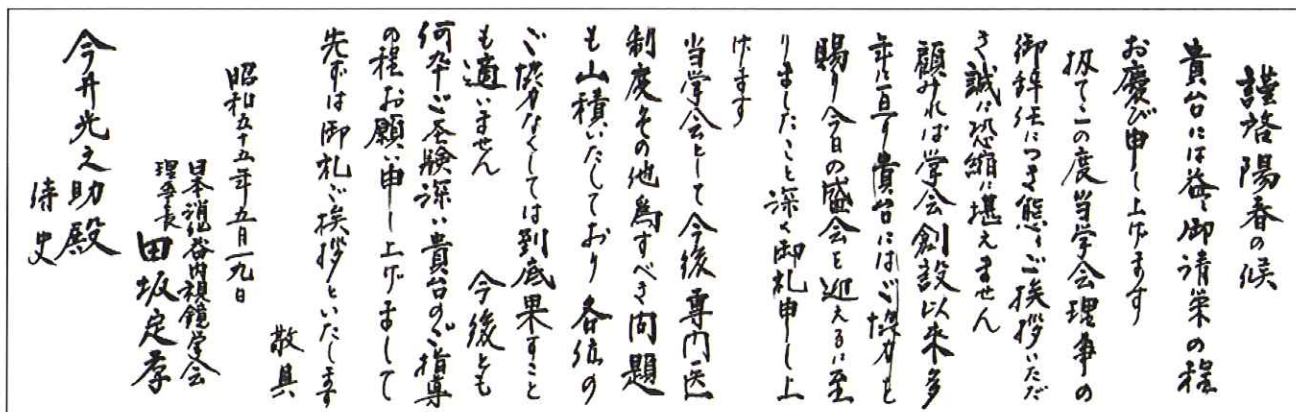 謹啓陽春の候
貴台には益々御清栄の程
お慶び申し上げます
扨てこの度当学会理事の
御辞任につき態々ご挨拶いただ
き誠に恐縮に堪えません
顧みれば学会創設以来多
年に亘り貴台にはご協力を
賜り今日の盛会を迎えるに至
りましたこと深く御礼申し上
げます
当学会として今後専門医
制度その他為すべき問題
も山積いたしており各位の
ご協力なくしては到底果すこと
も適いません 今後とも
何卒ご経験深い貴台のご指導
の程お願い申し上げまして
先ずは御礼ご挨拶といたします
敬具
昭和五十五年五月一九日
日本消化器内視鏡学会
理事長 田坂定孝
今井光之助殿
侍史